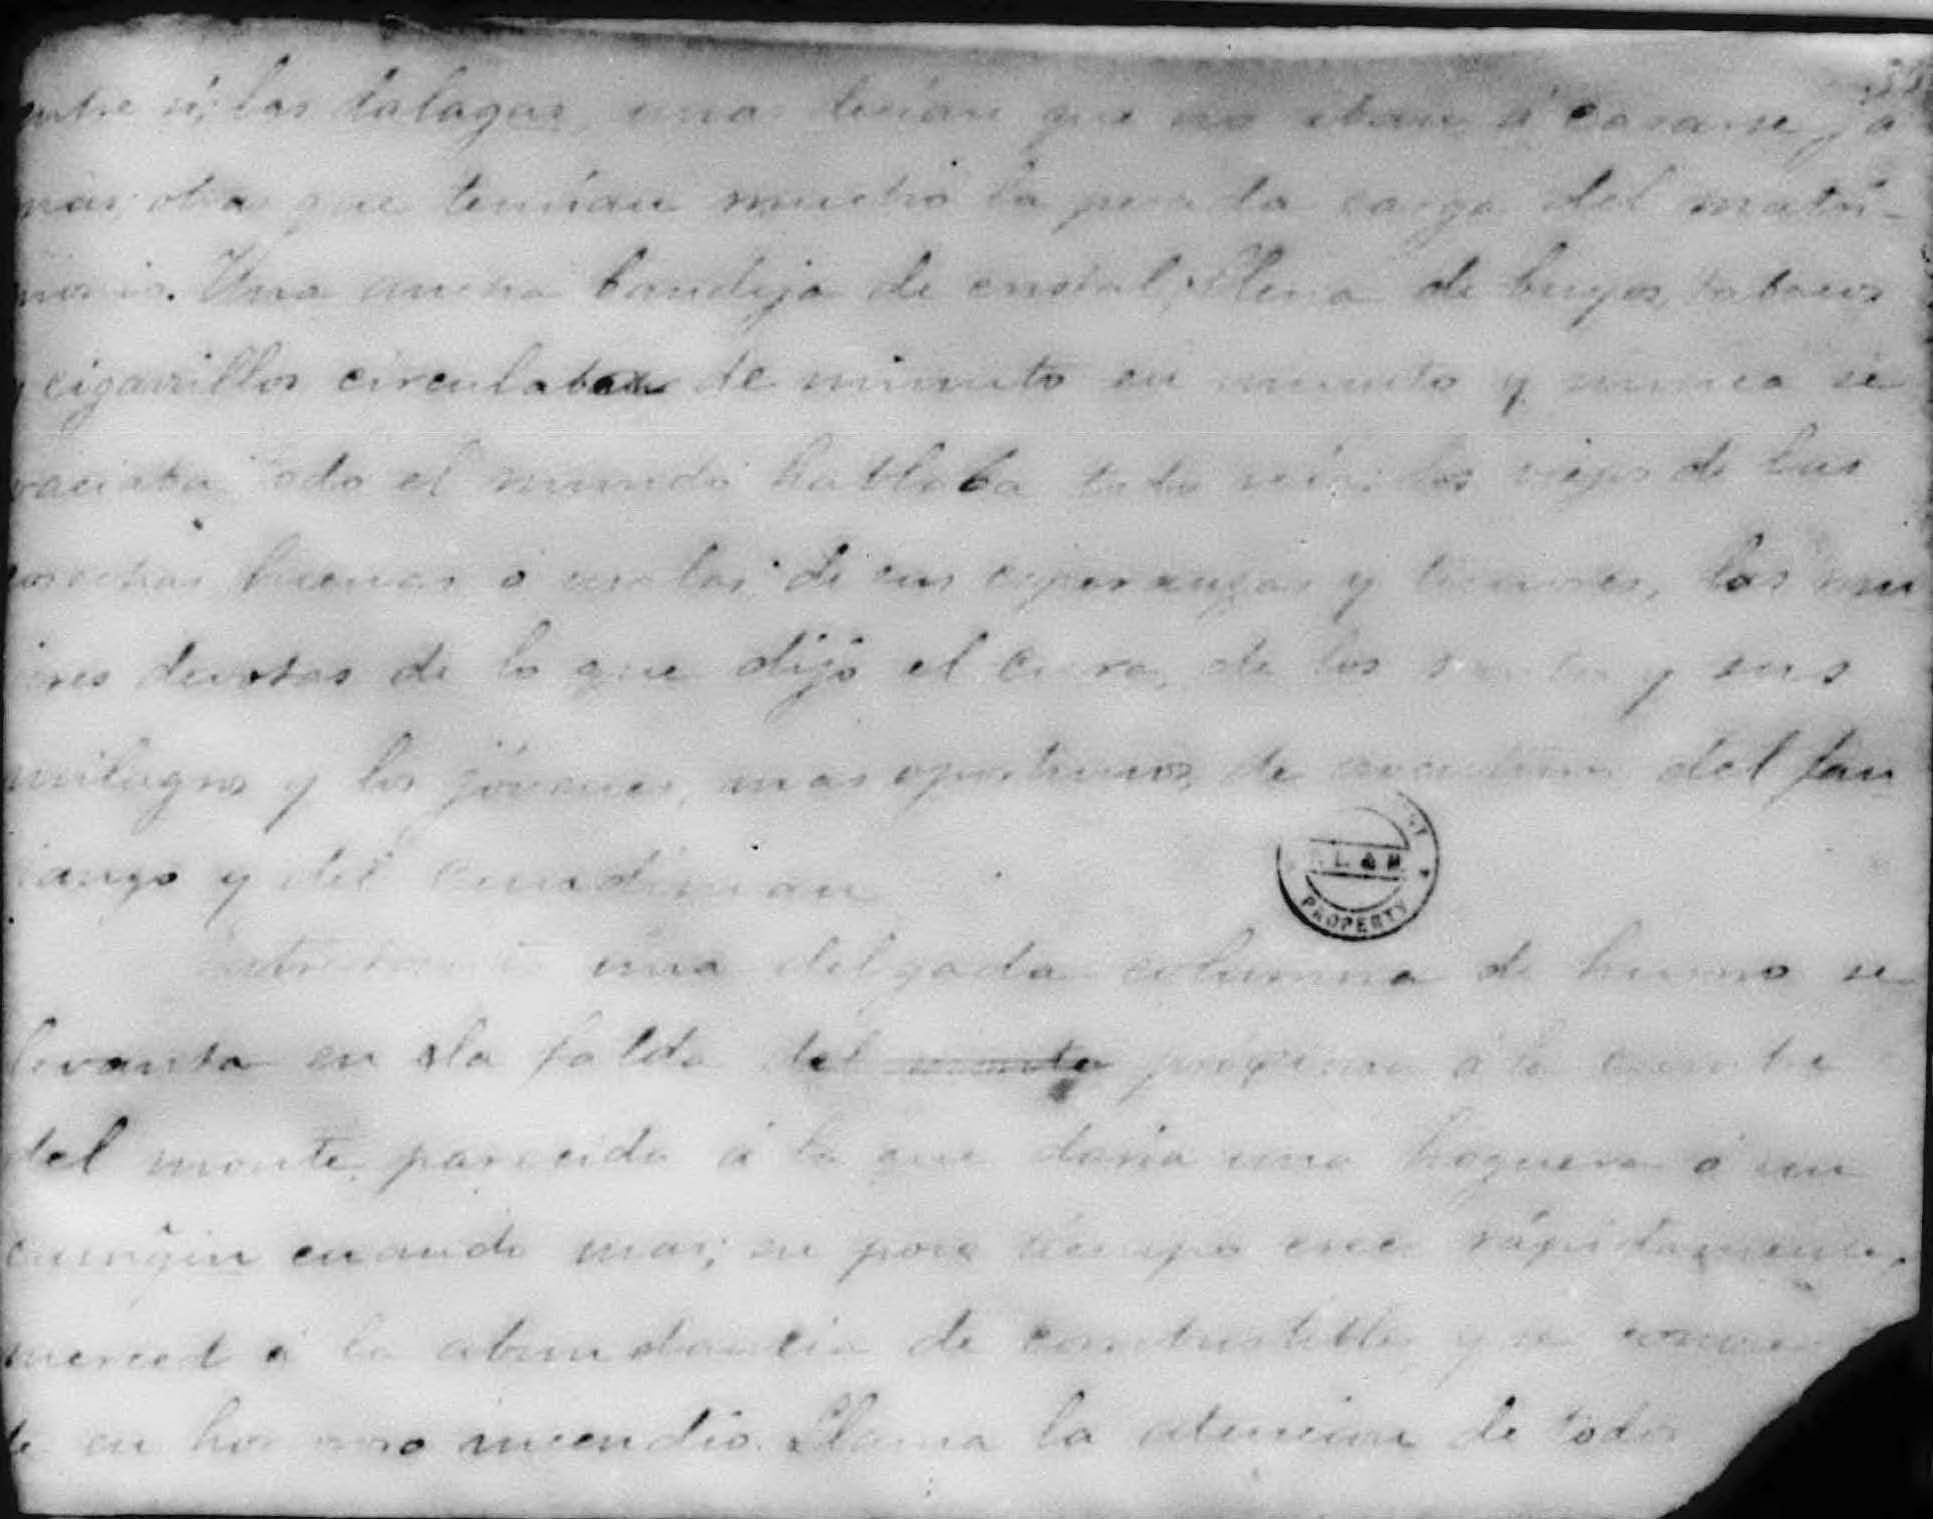 entre sí; las dalagas, unas decían que no iban á casarse ja
más, otras que temían mucho la pesada carga del matri-
monio. Una ancha bandeja de cristal, llena de buyos, tabacos
y cigarrillos circulaba de minuto en minuto y nunca se
vaciaba. Todo el mundo hablaba todo reía; los viejos de las
cosechas buenas ó malas, de sus esperanzas y temores, las mu
jeres devotas de lo que dijo el cura, de los santos y sus
milagros y los jóvenes, mas oportunos, de del fan
dango y del cundiman
Entretanto una delgada columna de humo se
levanta en la falda del monte próxima á la cumbre
del monte, parecida á la que daría una hoguera ó un
cuando mas; en poco tiempo crece rápidamente,
merced á la abundancia de combustible y se convier
te en hermoso incendio. Llama la atencion de todos
PROPERTY